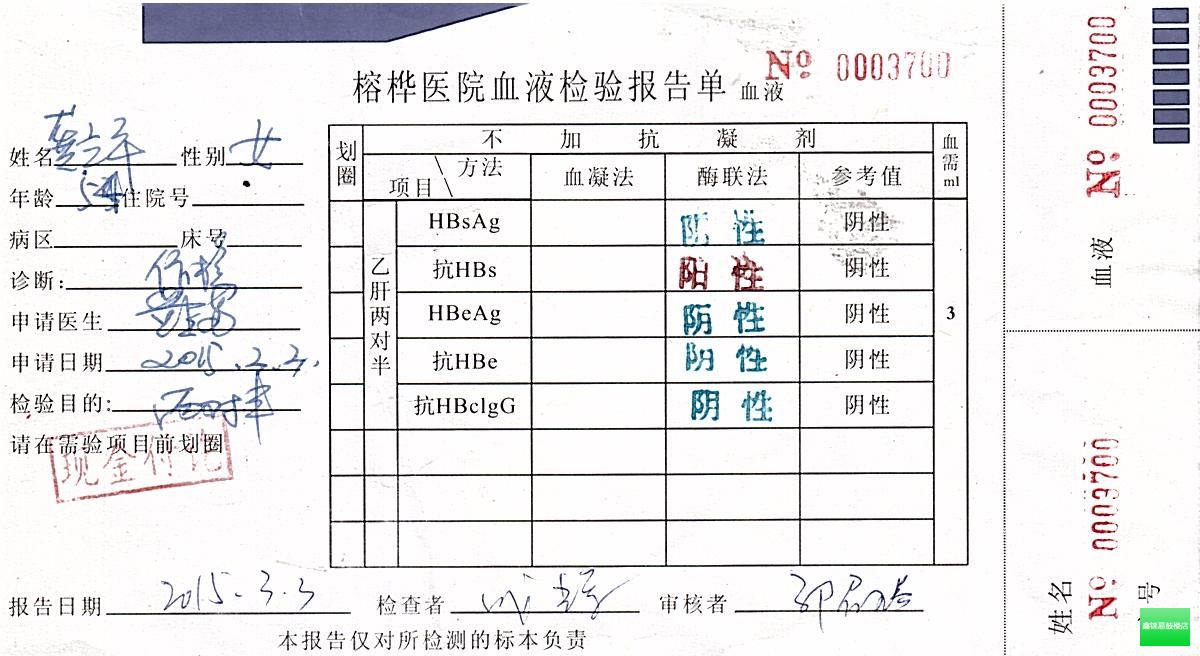 榕桦医院血液检验报告单 血液
№ 0003700
姓名 性别 女
年龄 54 住院号
病区 床号
诊断:
申请医生
申请日期 2015.2.2.
检验目的: 两对半
请在需验项目前划圈
现金付讫
划圈 不加抗凝剂 血需ml
方法 项目 血凝法 酶联法 参考值
乙肝两对半
HBsAg 阴性 阴性
抗HBs 阳性 阴性
HBeAg 阴性 阴性
抗HBe 阴性 阴性
抗HBclgG 阴性 阴性
3
报告日期 2015.3.3 检查者 审核者
本报告仅对所检测的标本负责
№ 0003700
血液
№ 0003700
姓名
号
鑫锦易鼓楼店